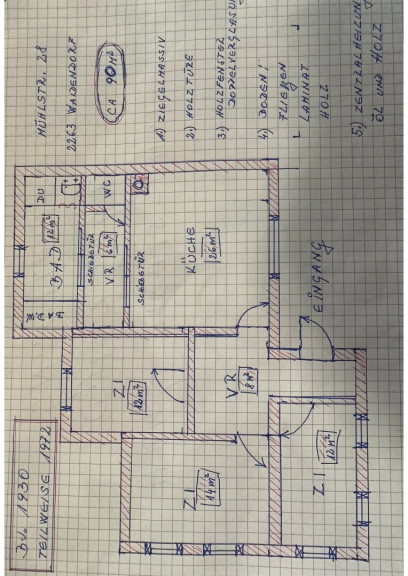 MÜHLSTR. 28
2263 WAIDENDORF
CA 90M²
1) ZIEGELMASSIV
2) HOLZTÜRE
3) HOLZFENSTER
DOPPELVERGLASUNG
4) BODEN:
FLIESEN
LAMINAT
HOLZ
5) ZENTRALHEIZUNG
ÖL UND HOLZ
DU
BAD 12m²
WM
SCHIEBETÜR
WC
VR 6m²
SCHIEBETÜR
KÜCHE
26m²
EINGANG
ZI
12m²
VR
8m²
ZI
14m²
ZI
12m²
BJ. 1930
TEILWEISE 1972